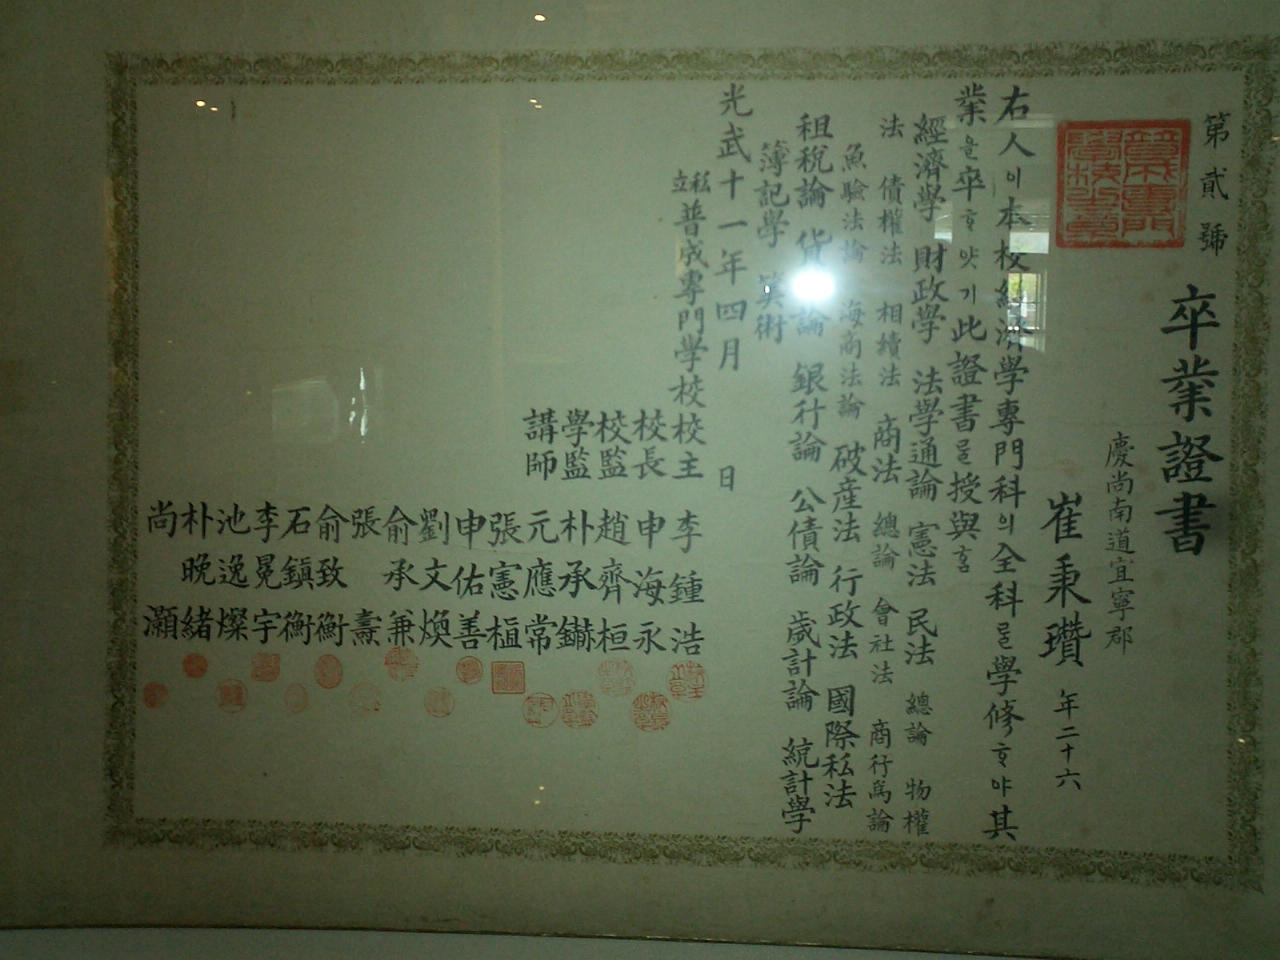 第貳號
卒業證書
慶尚南道宜寧郡
崔秉瓚 年二十六
右人이本校經濟學專門科의全科를學修ᄒᆞ야其
業을卒ᄒᆞ얏기此證書를授與홈
經濟學 財政學 法學通論 憲法 民法 總論 物權
法 債權法 相續法 商法 總論 會社法 商行爲論
魚驗法論 海商法論 破産法 行政法 國際私法
租稅論 貨 論 銀行論 公債論 歲計論 統計學
簿記學 筭術
光武十一年四月 日
私立普成專門學校校主 李鍾浩
校長 申海永
校監 趙齊桓
學監 朴承鑣
講師 元應常
張憲植
申佑善
劉文煥
俞承兼
張 燾
俞致衡
石鎮衡
李冕宇
池逸燦
朴晚緒
尚 灝